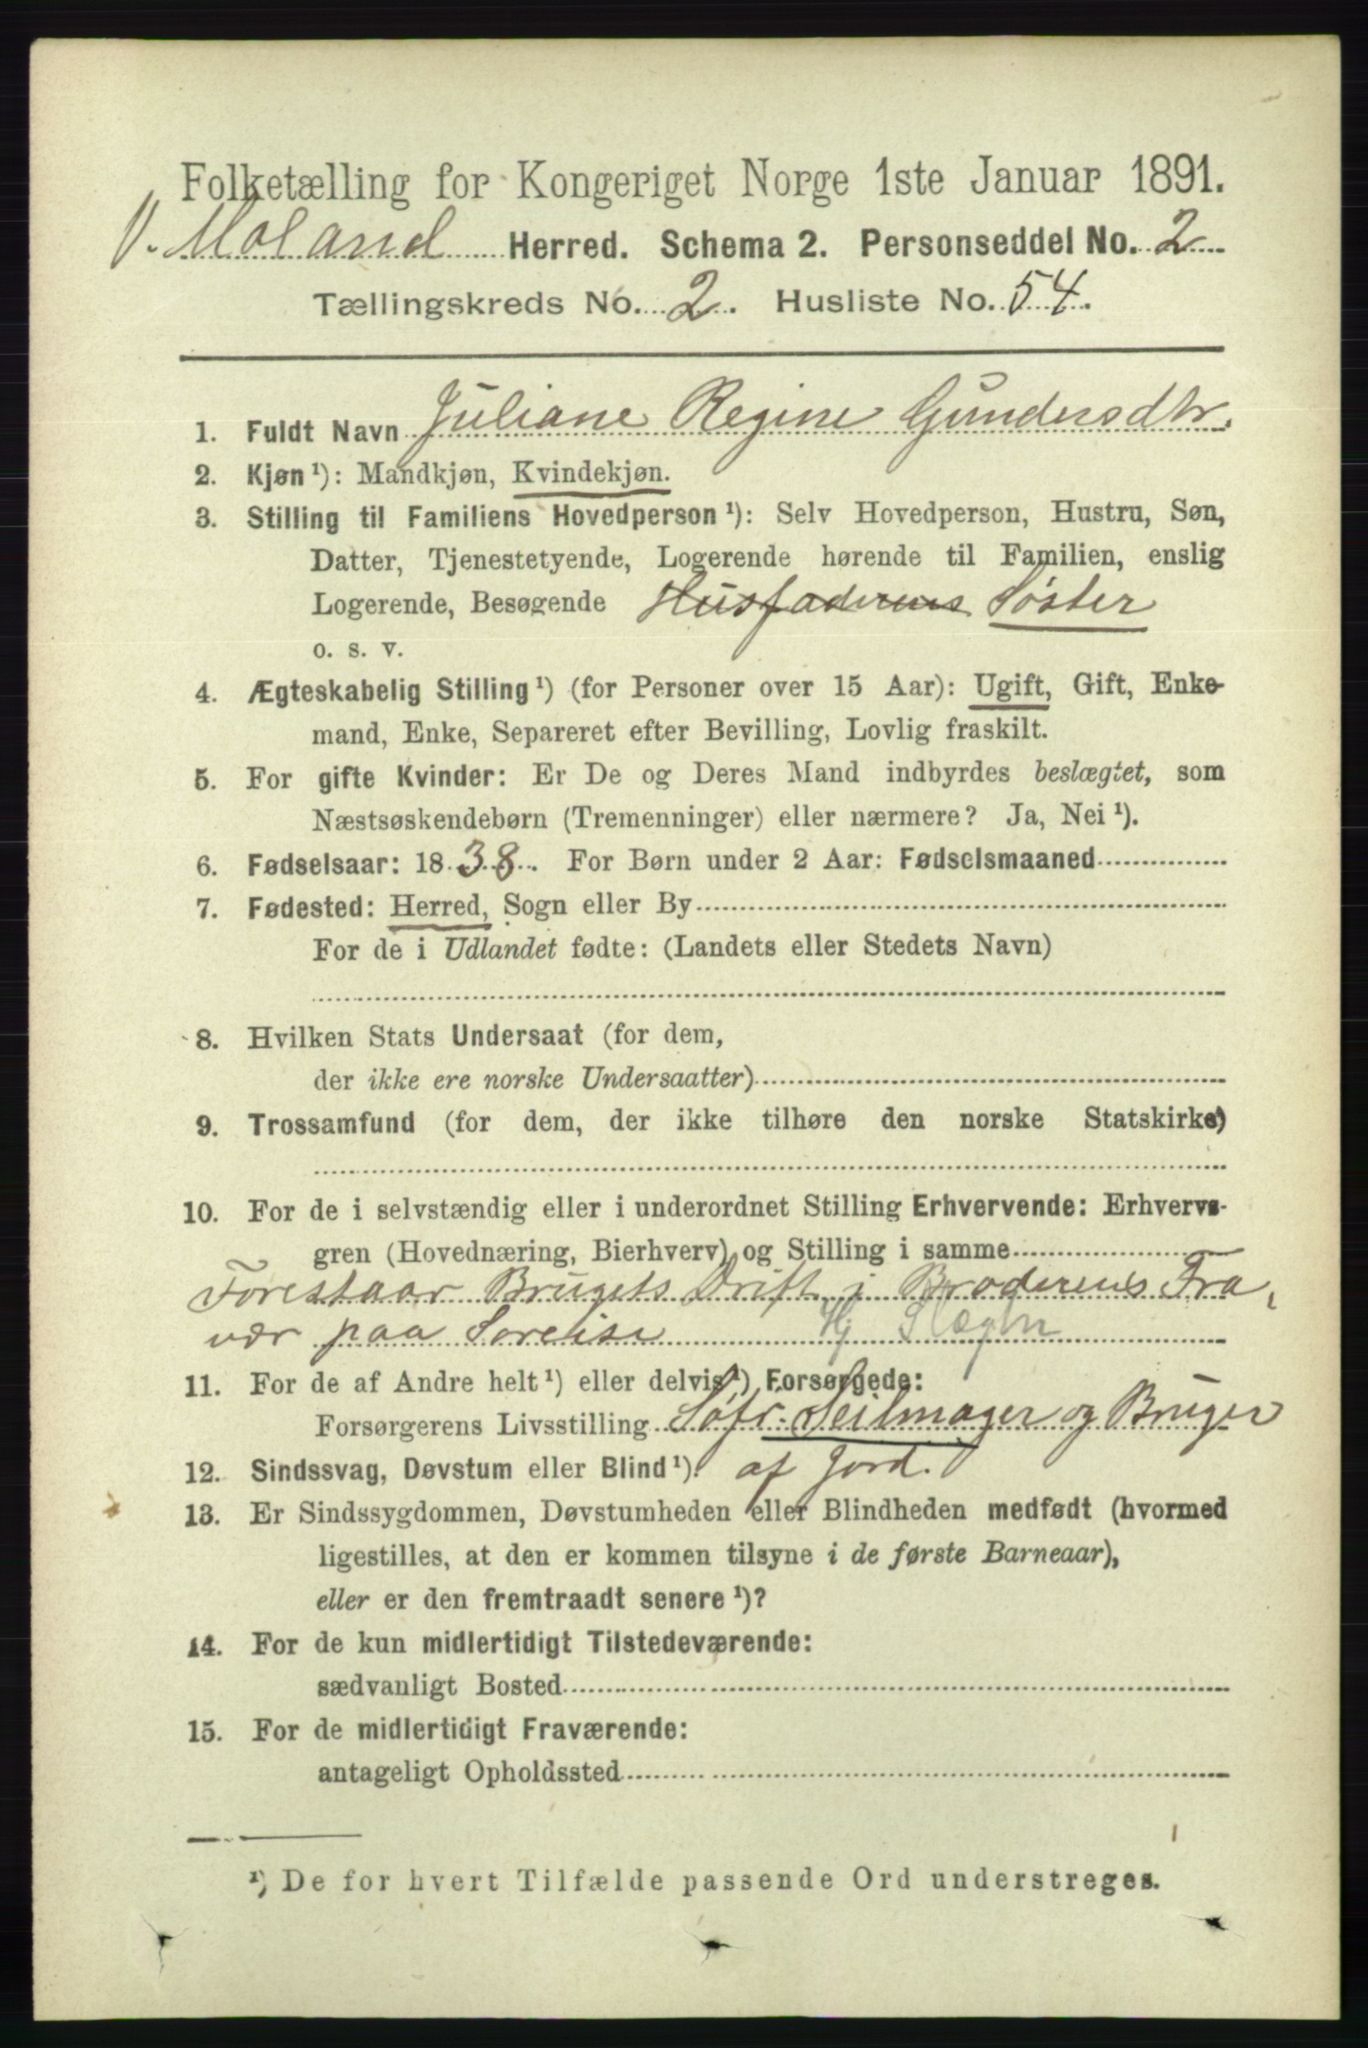 Folketælling for Kongeriget Norge 1ste Januar 1891.
V. Moland Herred. Schema 2. Personseddel No. 2
Tællingskreds No. 2. Husliste No. 54.
1. Fuldt Navn Juliane Regine Gundersdtr.
2. Kjøn ¹): Mandkjøn, Kvindekjøn.
3. Stilling til Familiens Hovedperson ¹): Selv Hovedperson, Hustru, Søn,
Datter, Tjenestetyende, Logerende hørende til Familien, enslig
Logerende, Besøgende Husfaderens Søster
o. s. v.
4. Ægteskabelig Stilling ¹) (for Personer over 15 Aar): Ugift, Gift, Enke-
mand, Enke, Separeret efter Bevilling, Lovlig fraskilt.
5. For gifte Kvinder: Er De og Deres Mand indbyrdes beslægtet, som
Næstsøskendebørn (Tremenninger) eller nærmere? Ja, Nei ¹).
6. Fødselsaar: 1838. For Børn under 2 Aar: Fødselsmaaned
7. Fødested: Herred, Sogn eller By
For de i Udlandet fødte: (Landets eller Stedets Navn)
8. Hvilken Stats Undersaat (for dem,
der ikke ere norske Undersaatter)
9. Trossamfund (for dem, der ikke tilhøre den norske Statskirke)
10. For de i selvstændig eller i underordnet Stilling Erhvervende: Erhvervs-
gren (Hovednæring, Bierhverv) og Stilling i samme
Forestaar Brugets Drift i Broderens Fra,
vær paa Søreise Hj
11. For de af Andre helt ¹) eller delvis ¹) Forsørgede:
Forsørgerens Livsstilling Søfr. Seilmager og Bruger
12. Sindssvag, Døvstum eller Blind ¹). af Jord.
13. Er Sindssygdommen, Døvstumheden eller Blindheden medfødt (hvormed
ligestilles, at den er kommen tilsyne i de første Barneaar),
eller er den fremtraadt senere ¹)?
14. For de kun midlertidigt Tilstedeværende:
sædvanligt Bosted
15. For de midlertidigt Fraværende:
antageligt Opholdssted
¹) De for hvert Tilfælde passende Ord understreges.